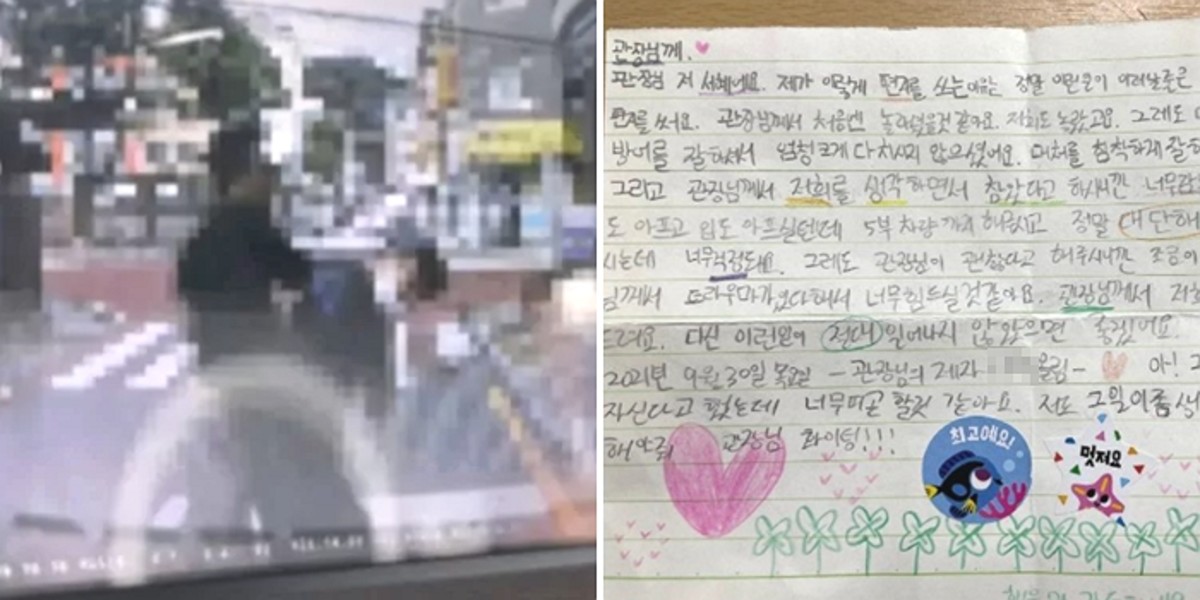 관장님께.
관장님 저 서혜에요. 제가 이렇게 편지를 쓰는 이유는 정말 이런일이 일어날줄은
편지를 써요. 관장님께서 처음엔 놀라셨을것 같아요. 저희도 놀랐고요. 그레도
방어를 잘하셔서 엄청크게 다치시지 않으셨어요. 대처를 침착하게 잘하
그리고 관장님께서 저희를 생각하면서 참았다고 하시니깐 너무감
도 아프고 입도 아프실텐데 5부 차량까지 하셨고 정말 대단하
시는데 너무걱정되요. 그레도 관장님이 괜찮다고 해주시니깐 조금이
님께서 트라우마가있다해서 너무힘드실것같아요. 관장님께서 저
드려요. 다신 이런일이 절대 일어나지 않았으면 좋겠어요.
2021년 9월 30일 목요일 - 관장님의 제자 올림 - 아! 그
자신다고 했는데 너무피곤 할것 같아요. 저도 그일이후 생
관장님 화이팅!!!
최고예요!
멋져요